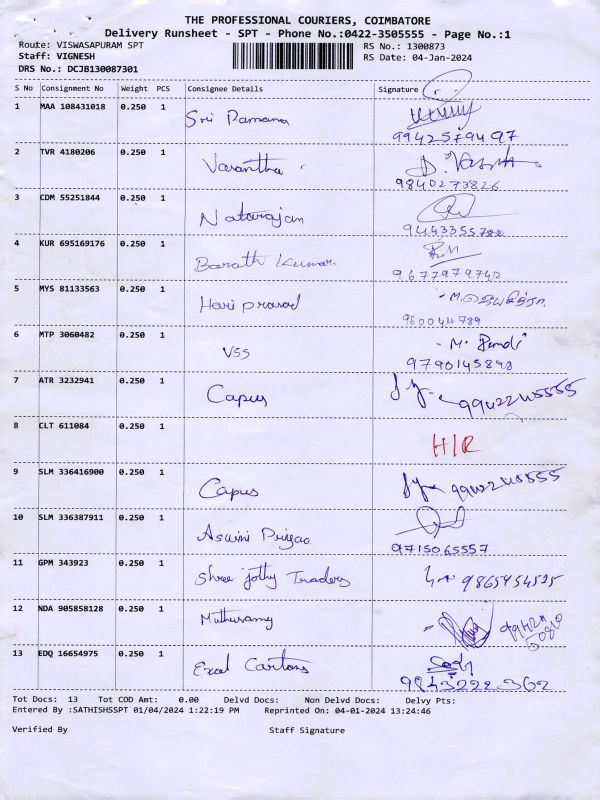 THE PROFESSIONAL COURIERS, COIMBATORE
Delivery Runsheet - SPT - Phone No.:0422-3505555 - Page No.:1
Route: VISWASAPURAM SPT RS No.: 1300873
Staff: VIGNESH RS Date: 04-Jan-2024
DRS No.: DCJB130087301
S No Consignment No Weight PCS Consignee Details Signature
1 MAA 108431018 0.250 1 Sri Ramana
9942579497
2 TVR 4180206 0.250 1 Vasantha
9840273826
3 CDM 55251844 0.250 1 Natarajan
9443355788
4 KUR 695169176 0.250 1 Barath Kumar
9677979742
5 MYS 81133563 0.250 1 Hari prasad
6 MTP 3060482 0.250 1 VSS
9790145898
7 ATR 3232941 0.250 1 Capus
8 CLT 611084 0.250 1 H/R
9 SLM 336416900 0.250 1 Capus
10 SLM 336387911 0.250 1
9715065557
11 GPM 343923 0.250 1 Shree jothy Traders 9865454525
12 NDA 905858128 0.250 1 Muthusamy
13 EDQ 16654975 0.250 1 Excel Cartons
9843222362
Tot Docs: 13 Tot COD Amt: 0.00 Delvd Docs: Non Delvd Docs: Delvy Pts:
Entered By :SATHISHSSPT 01/04/2024 1:22:19 PM Reprinted On: 04-01-2024 13:24:46
Verified By Staff Signature